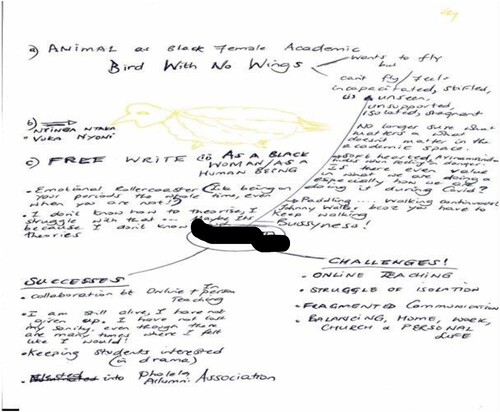 a) ANIMAL as Black Female Academic
Bird With No Wings
wants to fly
but
can't fly / feels
incapacitated, stifled,
unseen,
unsupported,
isolated, stagnant
No longer sure what
matters & what
doesn't matter in the
academic space.
b)
NTINGA NTAKA
• VUKA NYONI
c) FREE WRITE as AS A BLACK
WOMAN / AS A
HUMAN BEING
Is there even value
in what we are doing &
especially how we are
doing it during Covid?
• Emotional Rollercoaster (like being on
your periods the whole time, even
when you are not!)
→ Paddling .... walking continuously
Johnny Walker becoz you have to
Keep walking
Bussyness!
• I don't know how to theorise, I
struggle with that
because I don't know
theories
SUCCESSES
• Collaboration bt Online + In person
Teaching
• I am still alive, I have not
given up, I have not lost
my sanity, even though there
are many times where I felt
like I would!
• Keeping students interested
(in drama)
• Elected into Pholela
Allumni Association
CHALLENGES!
- ONLINE TEACHING
• STRUGGLE OF ISOLATION
• FRAGMENTED Communication
• BALANCING, HOME, WORK,
CHURCH & PERSONAL
LIFE